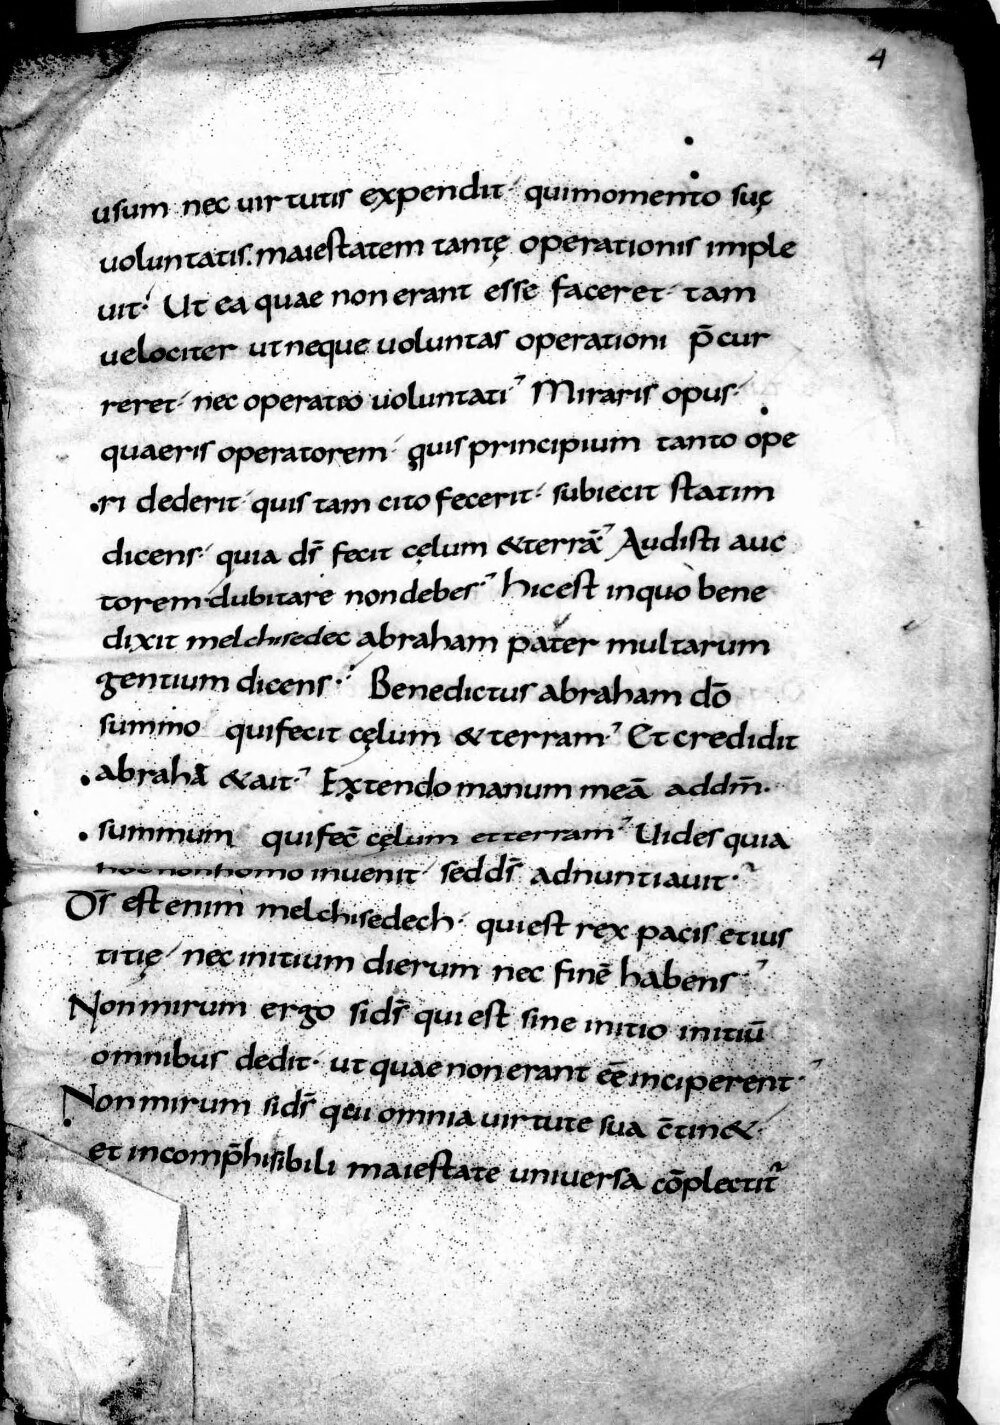 4
usum nec uirtutis expendit· qui momento suę
uoluntatis. maiestatem tantę operationis imple
uit· Ut ea quae non erant esse faceret· tam
uelociter ut neque uoluntas operationi p̄cur
reret· nec operatio uoluntati· Miraris opus·
quaeris operatorem· quis principium tanto ope
ri dederit· quis tam cito fecerit· subiecit statim
dicens· quia ds̄ fecit cęlum & terrā· Audisti auc
torem dubitare non debes· hic est in quo bene
dixit melchisedec abraham pater multarum
gentium dicens· Benedictus abraham dō
summo qui fecit cęlum & terram· Et credidit
abrahā & ait· Extendo manum meā ad dm̄·
summum qui fec̄ cęlum et terram· Uides quia
hoc non homo inuenit· sed ds̄ adnuntiauit·
Ds̄ est enim melchisedech· qui est rex pacis et ius
titię· nec initium dierum nec finē habens·
Non mirum ergo si ds̄ qui est sine initio initiū
omnibus dedit· ut quae non erant eē inciperent·
Non mirum si ds̄ qui omnia uirtute sua c̄tin&·
et incomp̄hisibili maiestate uniuersa cōplectit᷑